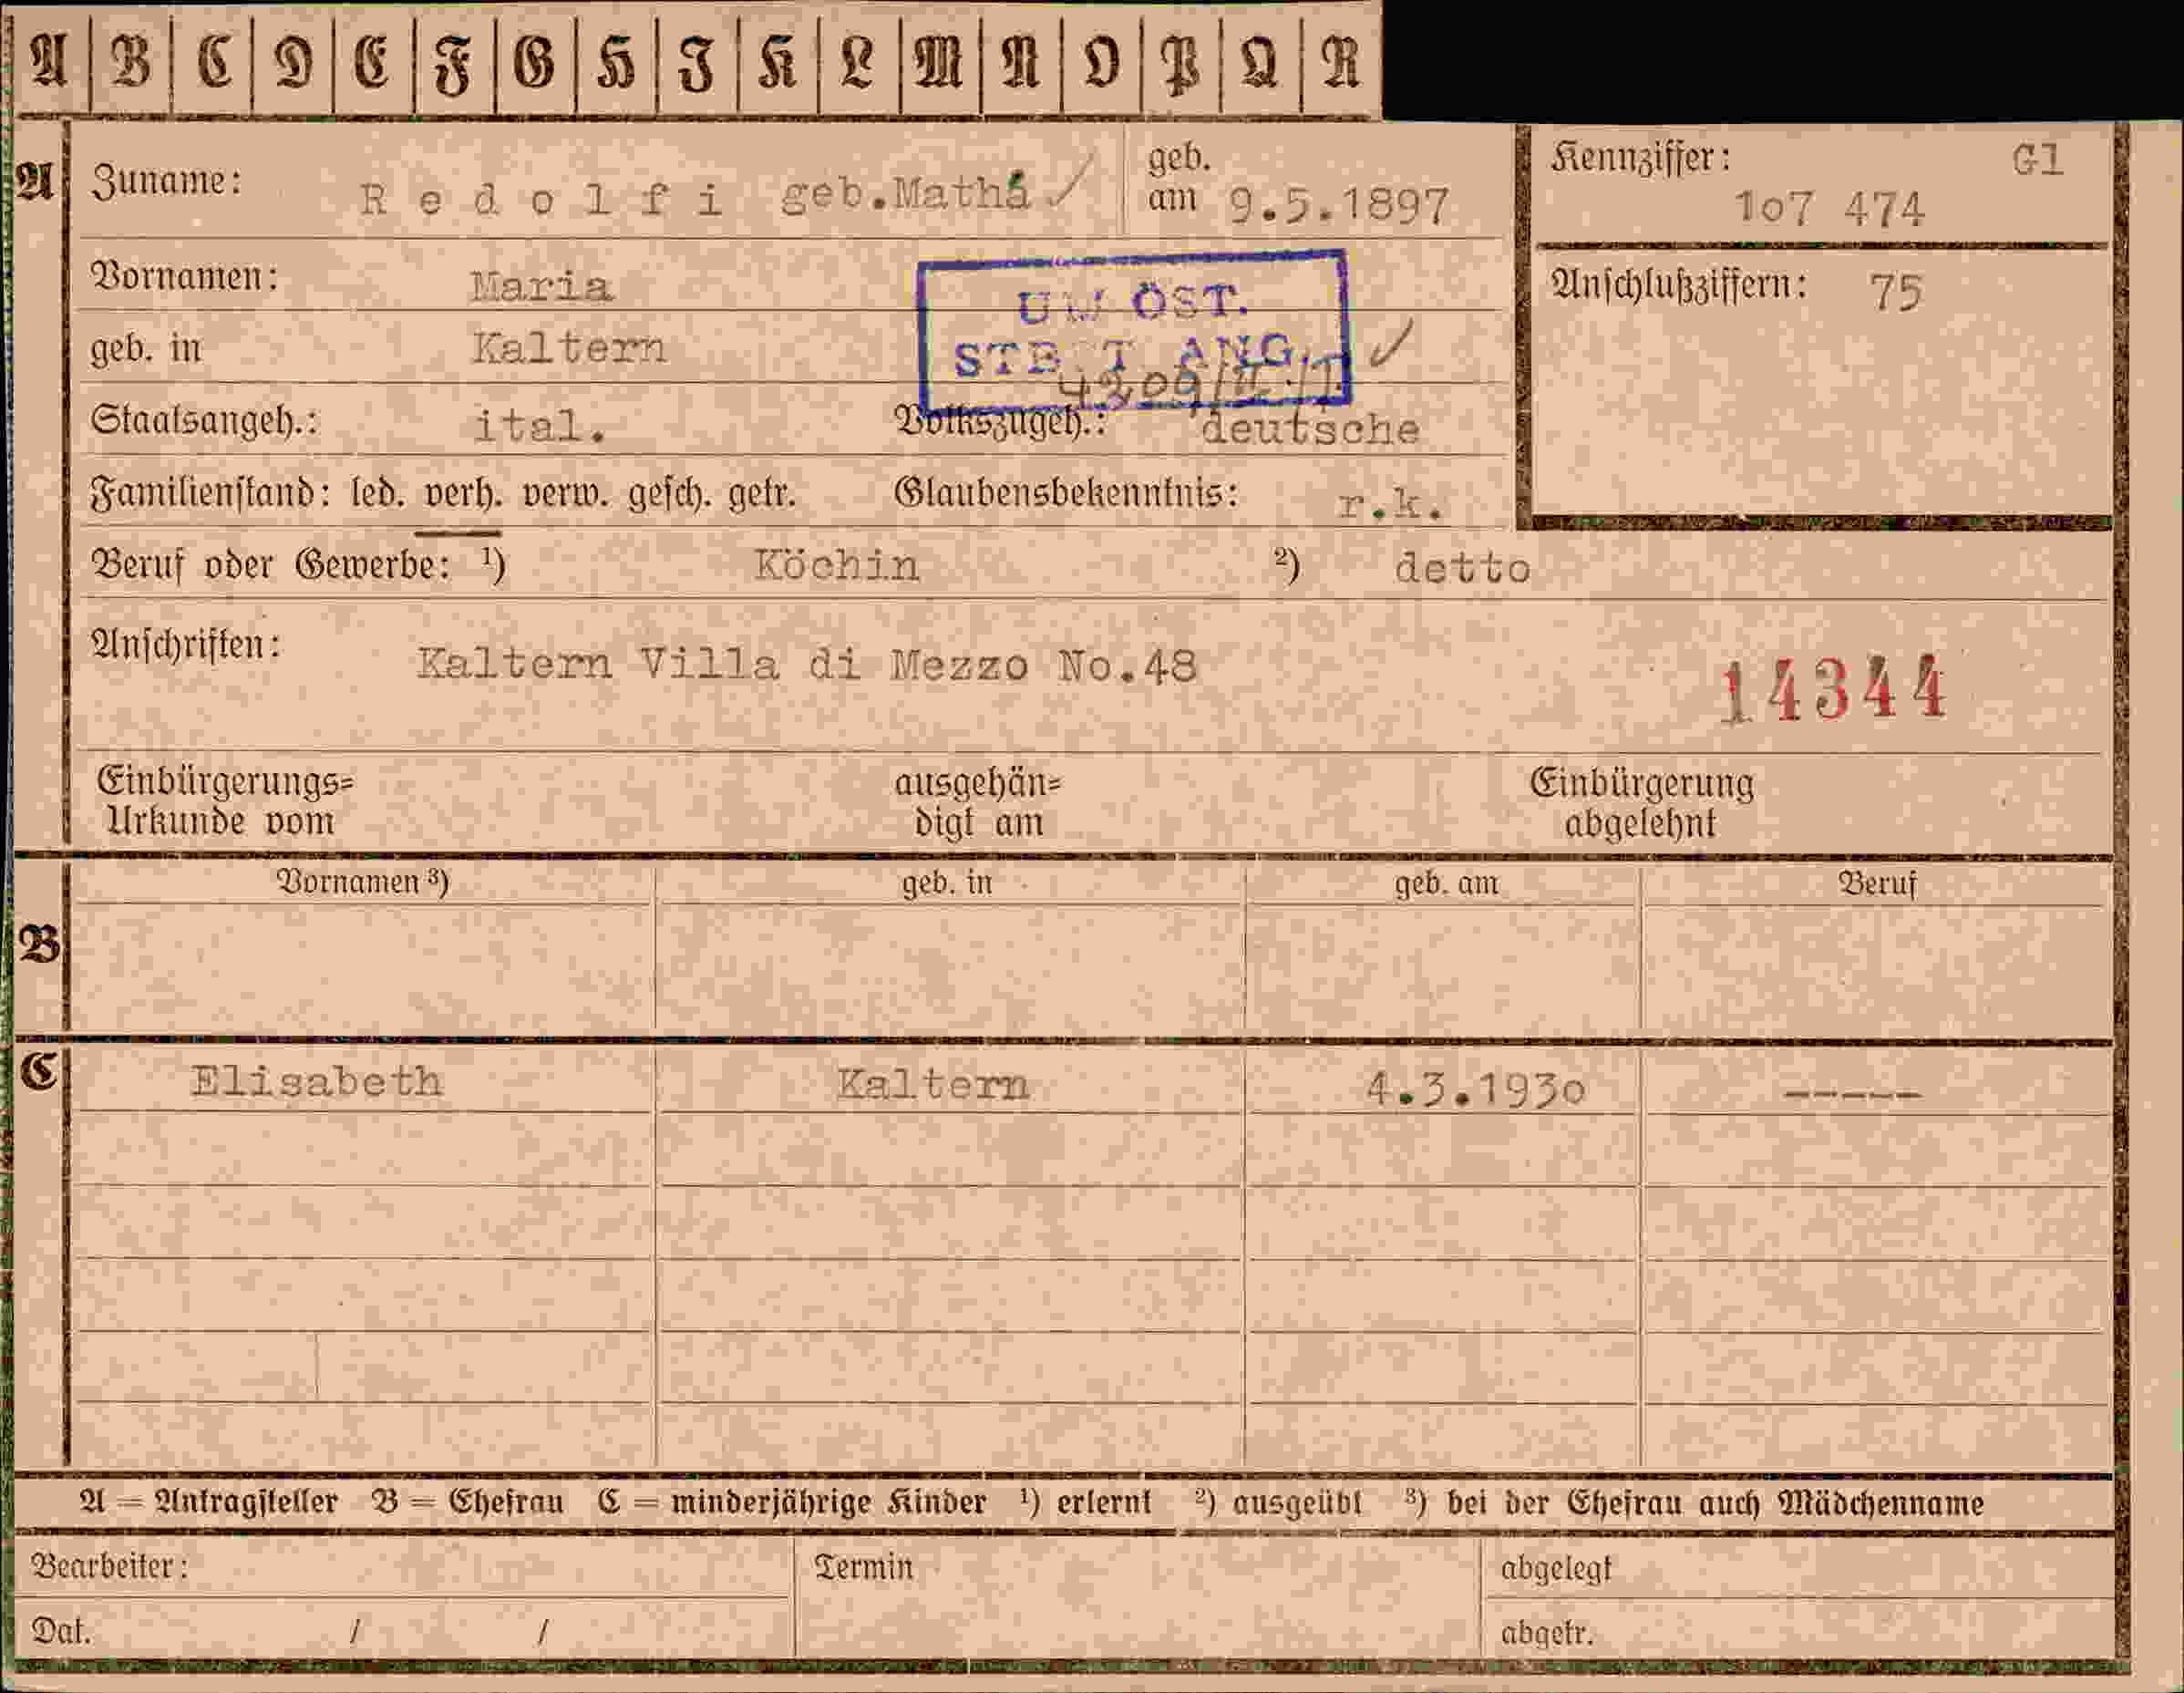 A B C D E F G H I K L M N O P Q R
A Zuname: Redolfi geb.Mathá geb. am 9.5.1897
Kennziffer: Gl
1o7 474
Vornamen: Maria
Anschlußziffern: 75
UM ÖST.
geb. in Kaltern
ANG.
Staatsangeh.: ital. Volkszugeh.: deutsche
Familienstand: led. verh. verw. gesch. getr. Glaubensbekenntnis: r.k.
Beruf oder Gewerbe: ¹) Köchin ²) detto
Anschriften: Kaltern Villa di Mezzo No.48
14344
Einbürgerungs=
Urkunde vom
ausgehän=
digt am
Einbürgerung
abgelehnt
Vornamen ³) geb. in geb. am Beruf
B
C Elisabeth Kaltern 4.3.193o -----
A = Antragsteller B = Ehefrau C = minderjährige Kinder ¹) erlernt ²) ausgeübt ³) bei der Ehefrau auch Mädchenname
Bearbeiter: Termin abgelegt
Dat. / / abgetr.